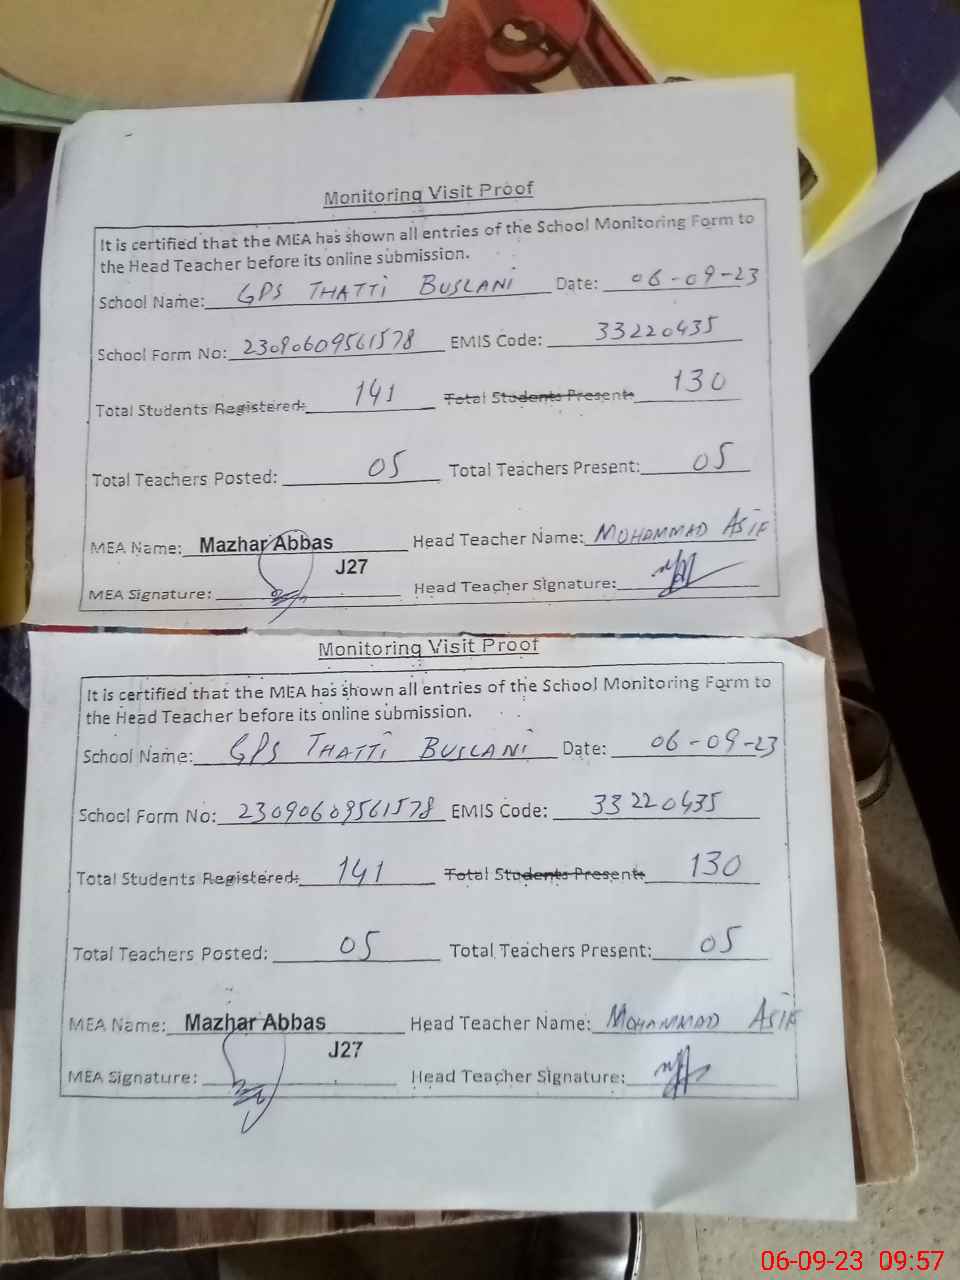 Monitoring Visit Proof
It is certified that the MEA has shown all entries of the School Monitoring Form to
the Head Teacher before its online submission.
School Name: GPS THATTI BUSLANI Date: 06-09-23
School Form No: 23090609561578 EMIS Code: 33220435
Total Students Registered: 141 Total Students Present: 130
Total Teachers Posted: 05 Total Teachers Present: 05
MEA Name: Mazhar Abbas Head Teacher Name: MOHAMMAD ASIF
J27
MEA Signature: Head Teacher Signature:
Monitoring Visit Proof
It is certified that the MEA has shown all entries of the School Monitoring Form to
the Head Teacher before its online submission.
School Name: GPS THATTI BUSLANI Date: 06-09-23
School Form No: 23090609561578 EMIS Code: 33220435
Total Students Registered: 141 Total Students Present: 130
Total Teachers Posted: 05 Total Teachers Present: 05
MEA Name: Mazhar Abbas Head Teacher Name: MOHAMMAD ASIF
J27
MEA Signature: Head Teacher Signature:
06-09-23 09:57